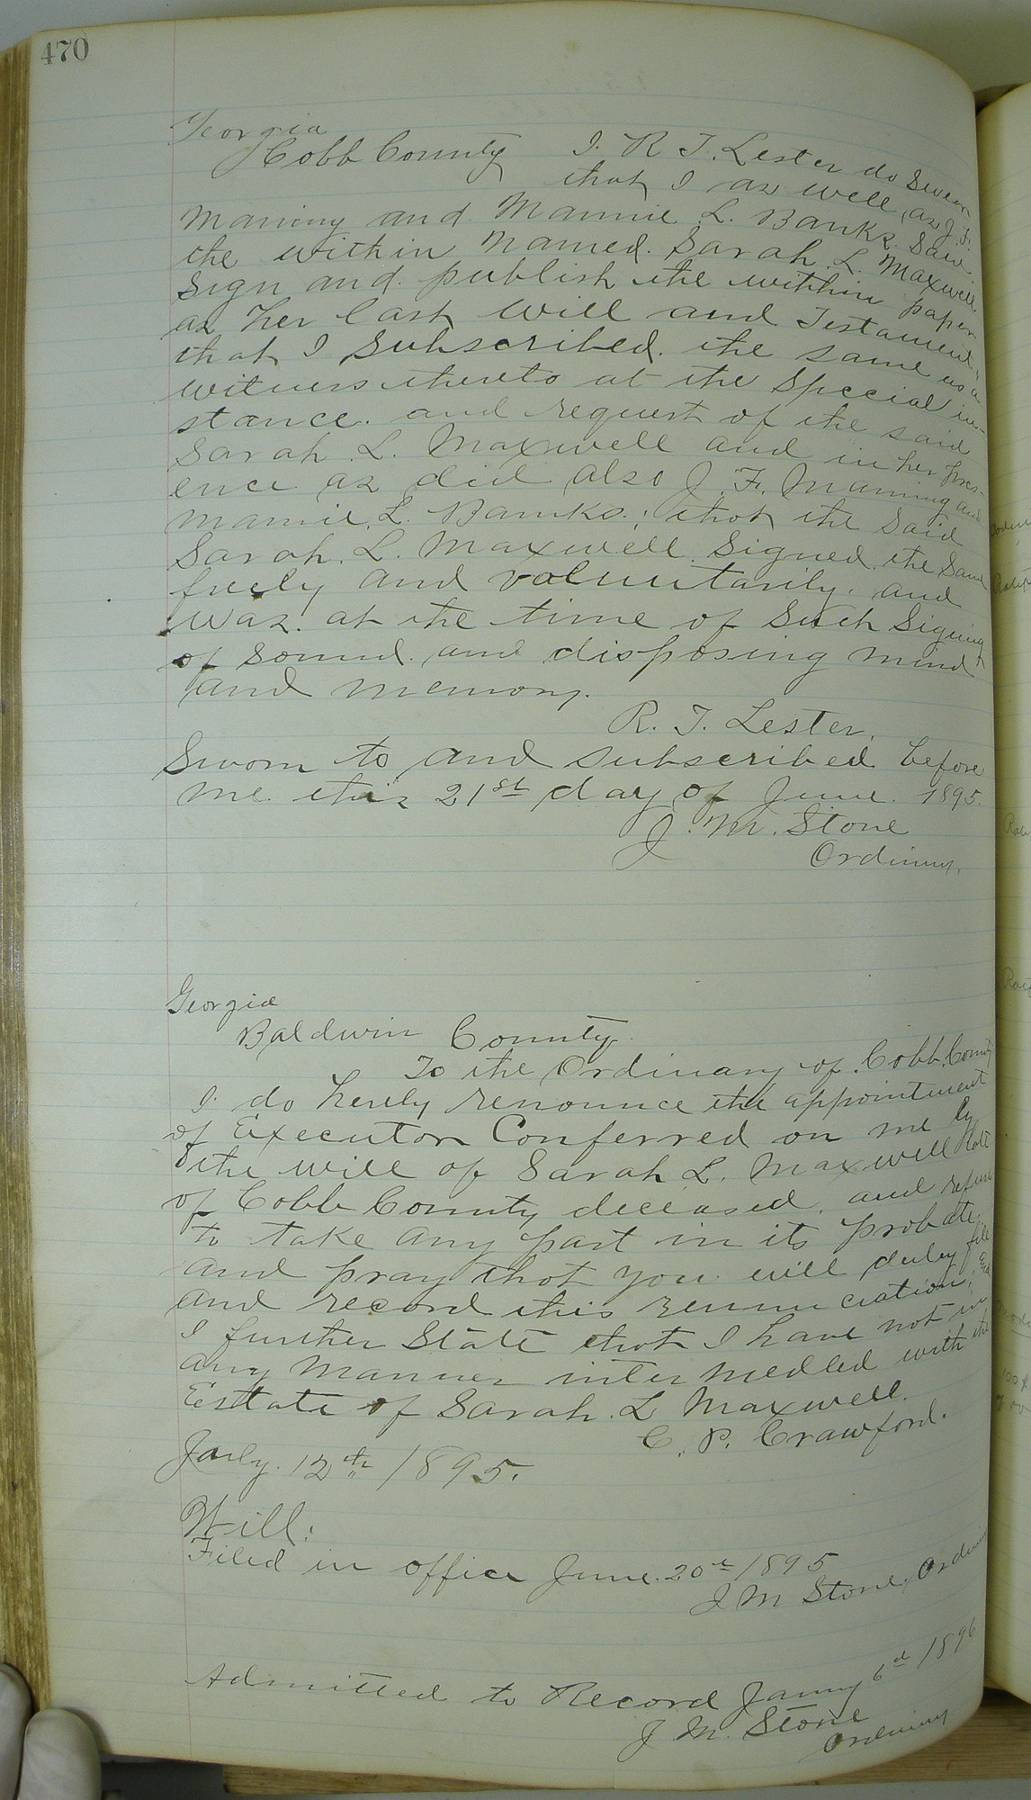 470
Georgia
Cobb County I. R. T. Lester do Swear
that I as well as J. F.
Manning and Mannie L. Banks. Saw
the within Named. Sarah. L. Maxwell
Sign and publish the within paper
as her last Will and Testament,
that I Subscribed. the same as a
witness thereto at the Special in-
stance. and request of the said
Sarah. L. Maxwell and in her Pres-
ence as did also J. F. Manning and
Mamie. L. Banks.; that the Said
Sarah. L. Maxwell Signed. the Same
freely and voluntarily. and
was. at the time of Such Signing
of Sound. and disposing mind
and memory.
R. T. Lester.
Sworn to and subscribed before
me this 21st day of June. 1895.
J. M. Stone
Ordinary.
Georgia
Baldwin County.
To the Ordinary of Cobb. County
I. do hereby renounce the appointment
of Executor Conferred on me by
the will of Sarah L. Maxwell late
of Cobb County deceased. and refuse
to take any part in its probate.
and pray that you will duley file
and record this renunciation; and
I further State that I have not in
any manner inter medled with the
Estate of Sarah. L Maxwell.
C. P. Crawford.
July. 12th 1895.
Will:
Filed in office June. 20th 1895
J M Stone, Ordinary
Admitted to Record Janny 6th 1896
J. M. Stone
Ordinary